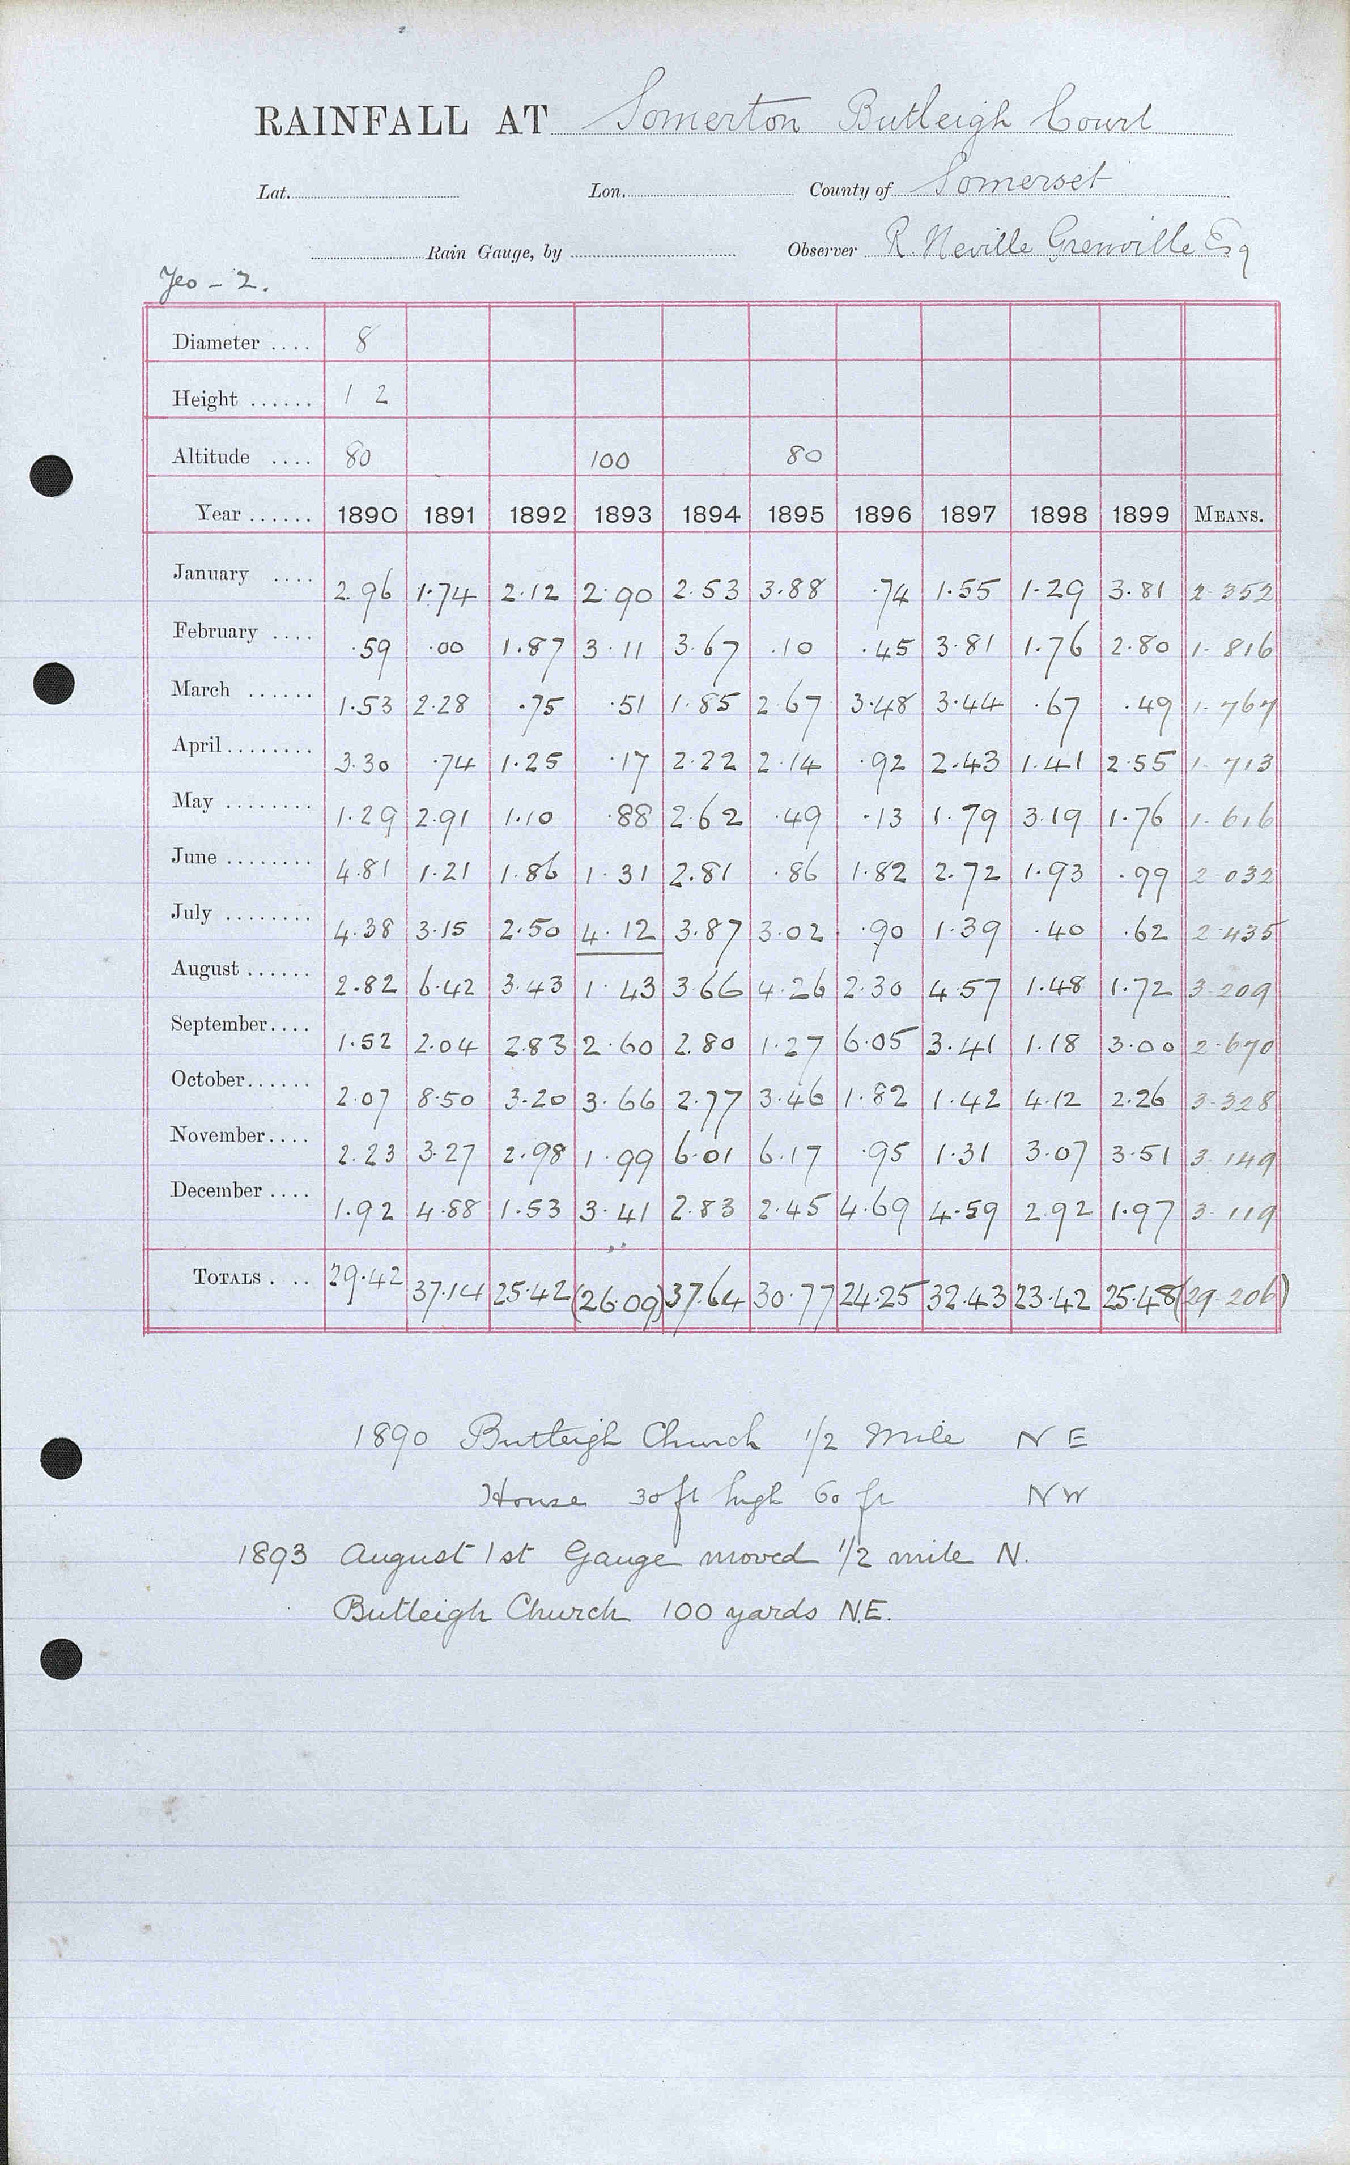 RAINFALL AT Somerton Butleigh Court
Lat. Lon. County of Somerset
Rain Gauge, by Observer R. Neville Grenville Esq
Yeo - 2.
Diameter .... 8
Height ...... 1 2
Altitude .... 80 100 80
Year ...... 1890 1891 1892 1893 1894 1895 1896 1897 1898 1899 MEANS.
January .... 2.96 1.74 2.12 2.90 2.53 3.88 .74 1.55 1.29 3.81 2.352
February .... .59 .00 1.87 3.11 3.67 .10 .45 3.81 1.76 2.80 1.816
March ...... 1.53 2.28 .75 .51 1.85 2.67 3.48 3.44 .67 .49 1.767
April ........ 3.30 .74 1.25 .17 2.22 2.14 .92 2.43 1.41 2.55 1.713
May ........ 1.29 2.91 1.10 .88 2.62 .49 .13 1.79 3.19 1.76 1.616
June ........ 4.81 1.21 1.86 1.31 2.81 .86 1.82 2.72 1.93 .99 2.032
July ........ 4.38 3.15 2.50 4.12 3.87 3.02 .90 1.39 .40 .62 2.435
August ...... 2.82 6.42 3.43 1.43 3.66 4.26 2.30 4.57 1.48 1.72 3.209
September .... 1.52 2.04 2.83 2.60 2.80 1.27 6.05 3.41 1.18 3.00 2.670
October ...... 2.07 8.50 3.20 3.66 2.77 3.46 1.82 1.42 4.12 2.26 3.328
November .... 2.23 3.27 2.98 1.99 6.01 6.17 .95 1.31 3.07 3.51 3.149
December .... 1.92 4.88 1.53 3.41 2.83 2.45 4.69 4.59 2.92 1.97 3.119
TOTALS . .. 29.42 37.14 25.42 (26.09) 37.64 30.77 24.25 32.43 23.42 25.48 (29.206)
1890 Butleigh Church 1/2 Mile N E
House 30 ft high 60 ft NW
1893 August 1st Gauge moved 1/2 mile N.
Butleigh Church 100 yards N.E.